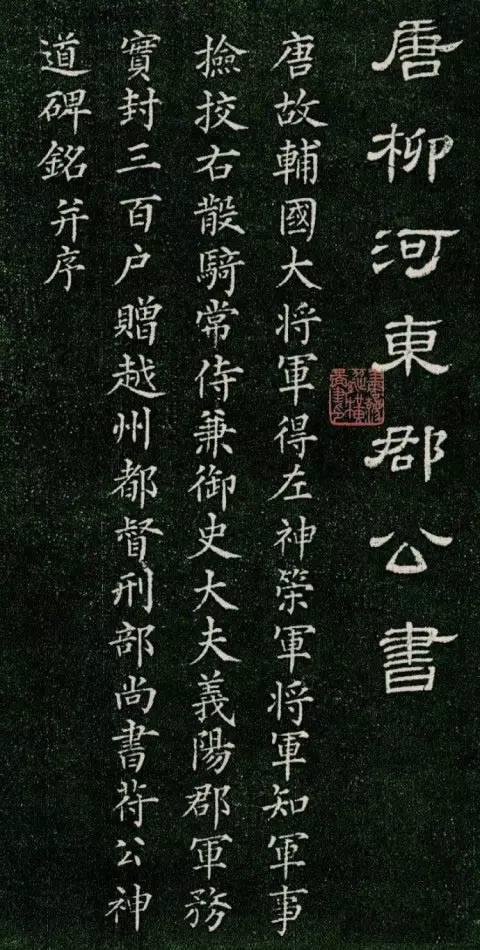 唐柳河東郡公書
唐故輔國大将軍得左神筞軍将軍知軍事
撿挍右散騎常侍兼御史大夫義陽郡軍務
實封三百户贈越州都督刑部尚書苻公神
道碑銘并序